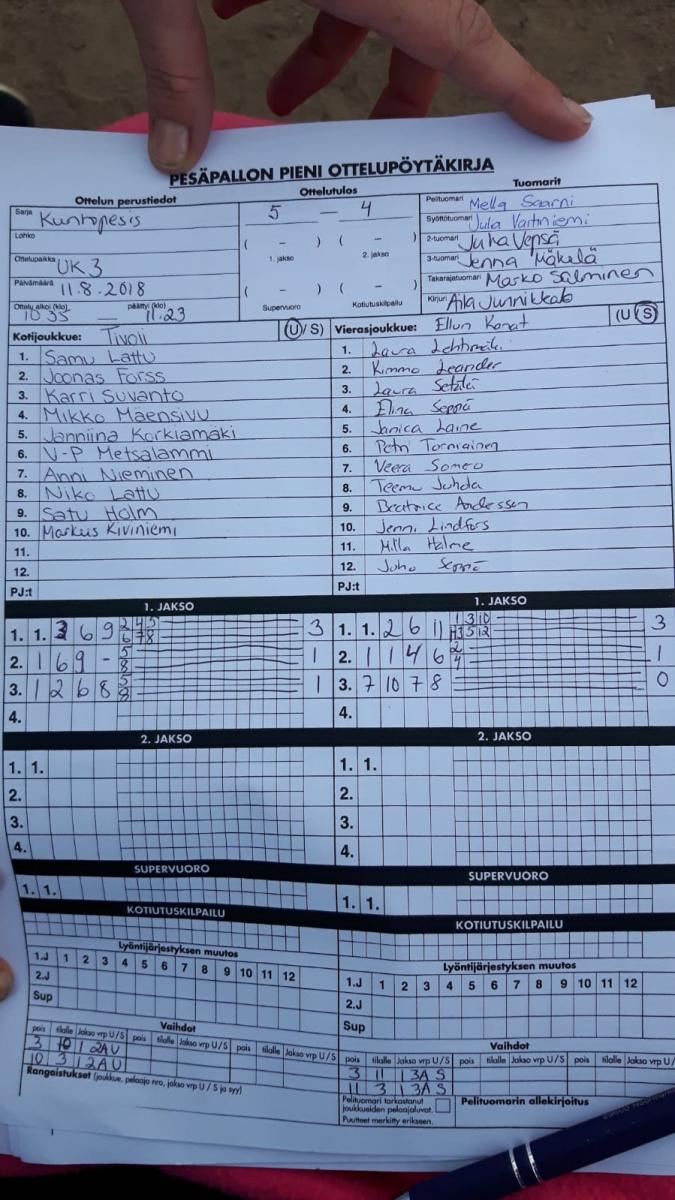 PESÄPALLON PIENI OTTELUPÖYTÄKIRJA
Ottelun perustiedot
Sarja Kuntopesis
Lohko
Ottelupaikka UK3
Päivämäärä 11.8.2018
Ottelu alkoi (klo) päättyi (klo)
1035 — 11.23
Ottelutulos
5 — 4
( – ) ( – )
1. jakso 2. jakso
( – ) ( – )
Supervuoro Kotiutuskilpailu
Tuomarit
Pelituomari Mella Saarni
Syöttötuomari Jula Vaitiniemi
2-tuomari Juha Vepsä
3-tuomari Jenna Mäkelä
Takarajatuomari Marko Salminen
Kirjuri Aila
Kotijoukkue: Tivoli (U/S)
1. Samu Lattu
2. Joonas Forss
3. Karri Suvanto
4. Mikko Mäensivu
5. Janniina Korkiamäki
6. V-P Metsalammi
7. Anni Nieminen
8. Niko Lattu
9. Satu Holm
10. Markus Kiviniemi
11.
12.
PJ:t
Vierasjoukkue: Ellun Kanat (U/S)
1. Laura Lehtimäki
2. Kimmo Leander
3. Laura Setälä
4. Elina Seppä
5. Janica Laine
6. Petri Torniainen
7. Veera Someo
8. Teemu Juhda
9. Beatrice Andersson
10. Jenni Lindfors
11. Milla Halme
12. Juho Seppä
PJ:t
1. JAKSO
1. 1. 3 6 9 2 4 5 3
6 7 8
2. 1 6 9 - 5 8 1
3. 1 2 6 8 5 8 1
4.
1. JAKSO
1. 1. 2 6 11 1 3 10 3
3 5 12
2. 1 1 4 6 2 4 1
3. 7 10 7 8 0
4.
2. JAKSO
1. 1.
2.
3.
4.
2. JAKSO
1. 1.
2.
3.
4.
SUPERVUORO
1. 1.
SUPERVUORO
1. 1.
KOTIUTUSKILPAILU
KOTIUTUSKILPAILU
Lyöntijärjestyksen muutos
1.J 1 2 3 4 5 6 7 8 9 10 11 12
2.J
Sup
Lyöntijärjestyksen muutos
1.J 1 2 3 4 5 6 7 8 9 10 11 12
2.J
Sup
Vaihdot
pois tilalle Jakso vrp U/S pois tilalle Jakso vrp U/S pois tilalle Jakso vrp U/S
3 10 1 2AU
10 3 1 2AU
Rangaistukset (joukkue, pelaaja nro, jakso vrp U / S ja syy)
Vaihdot
pois tilalle Jakso vrp U/S pois tilalle Jakso vrp U/S pois tilalle Jakso vrp U/
3 11 1 3A S
11 3 1 3A S
Pelituomari tarkastanut
joukkueiden pelaajaluvat.
Puutteet merkitty erikseen.
Pelituomarin allekirjoitus